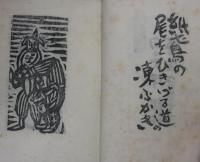 紙鳶の
尾をひきづる道の
凍ふかき